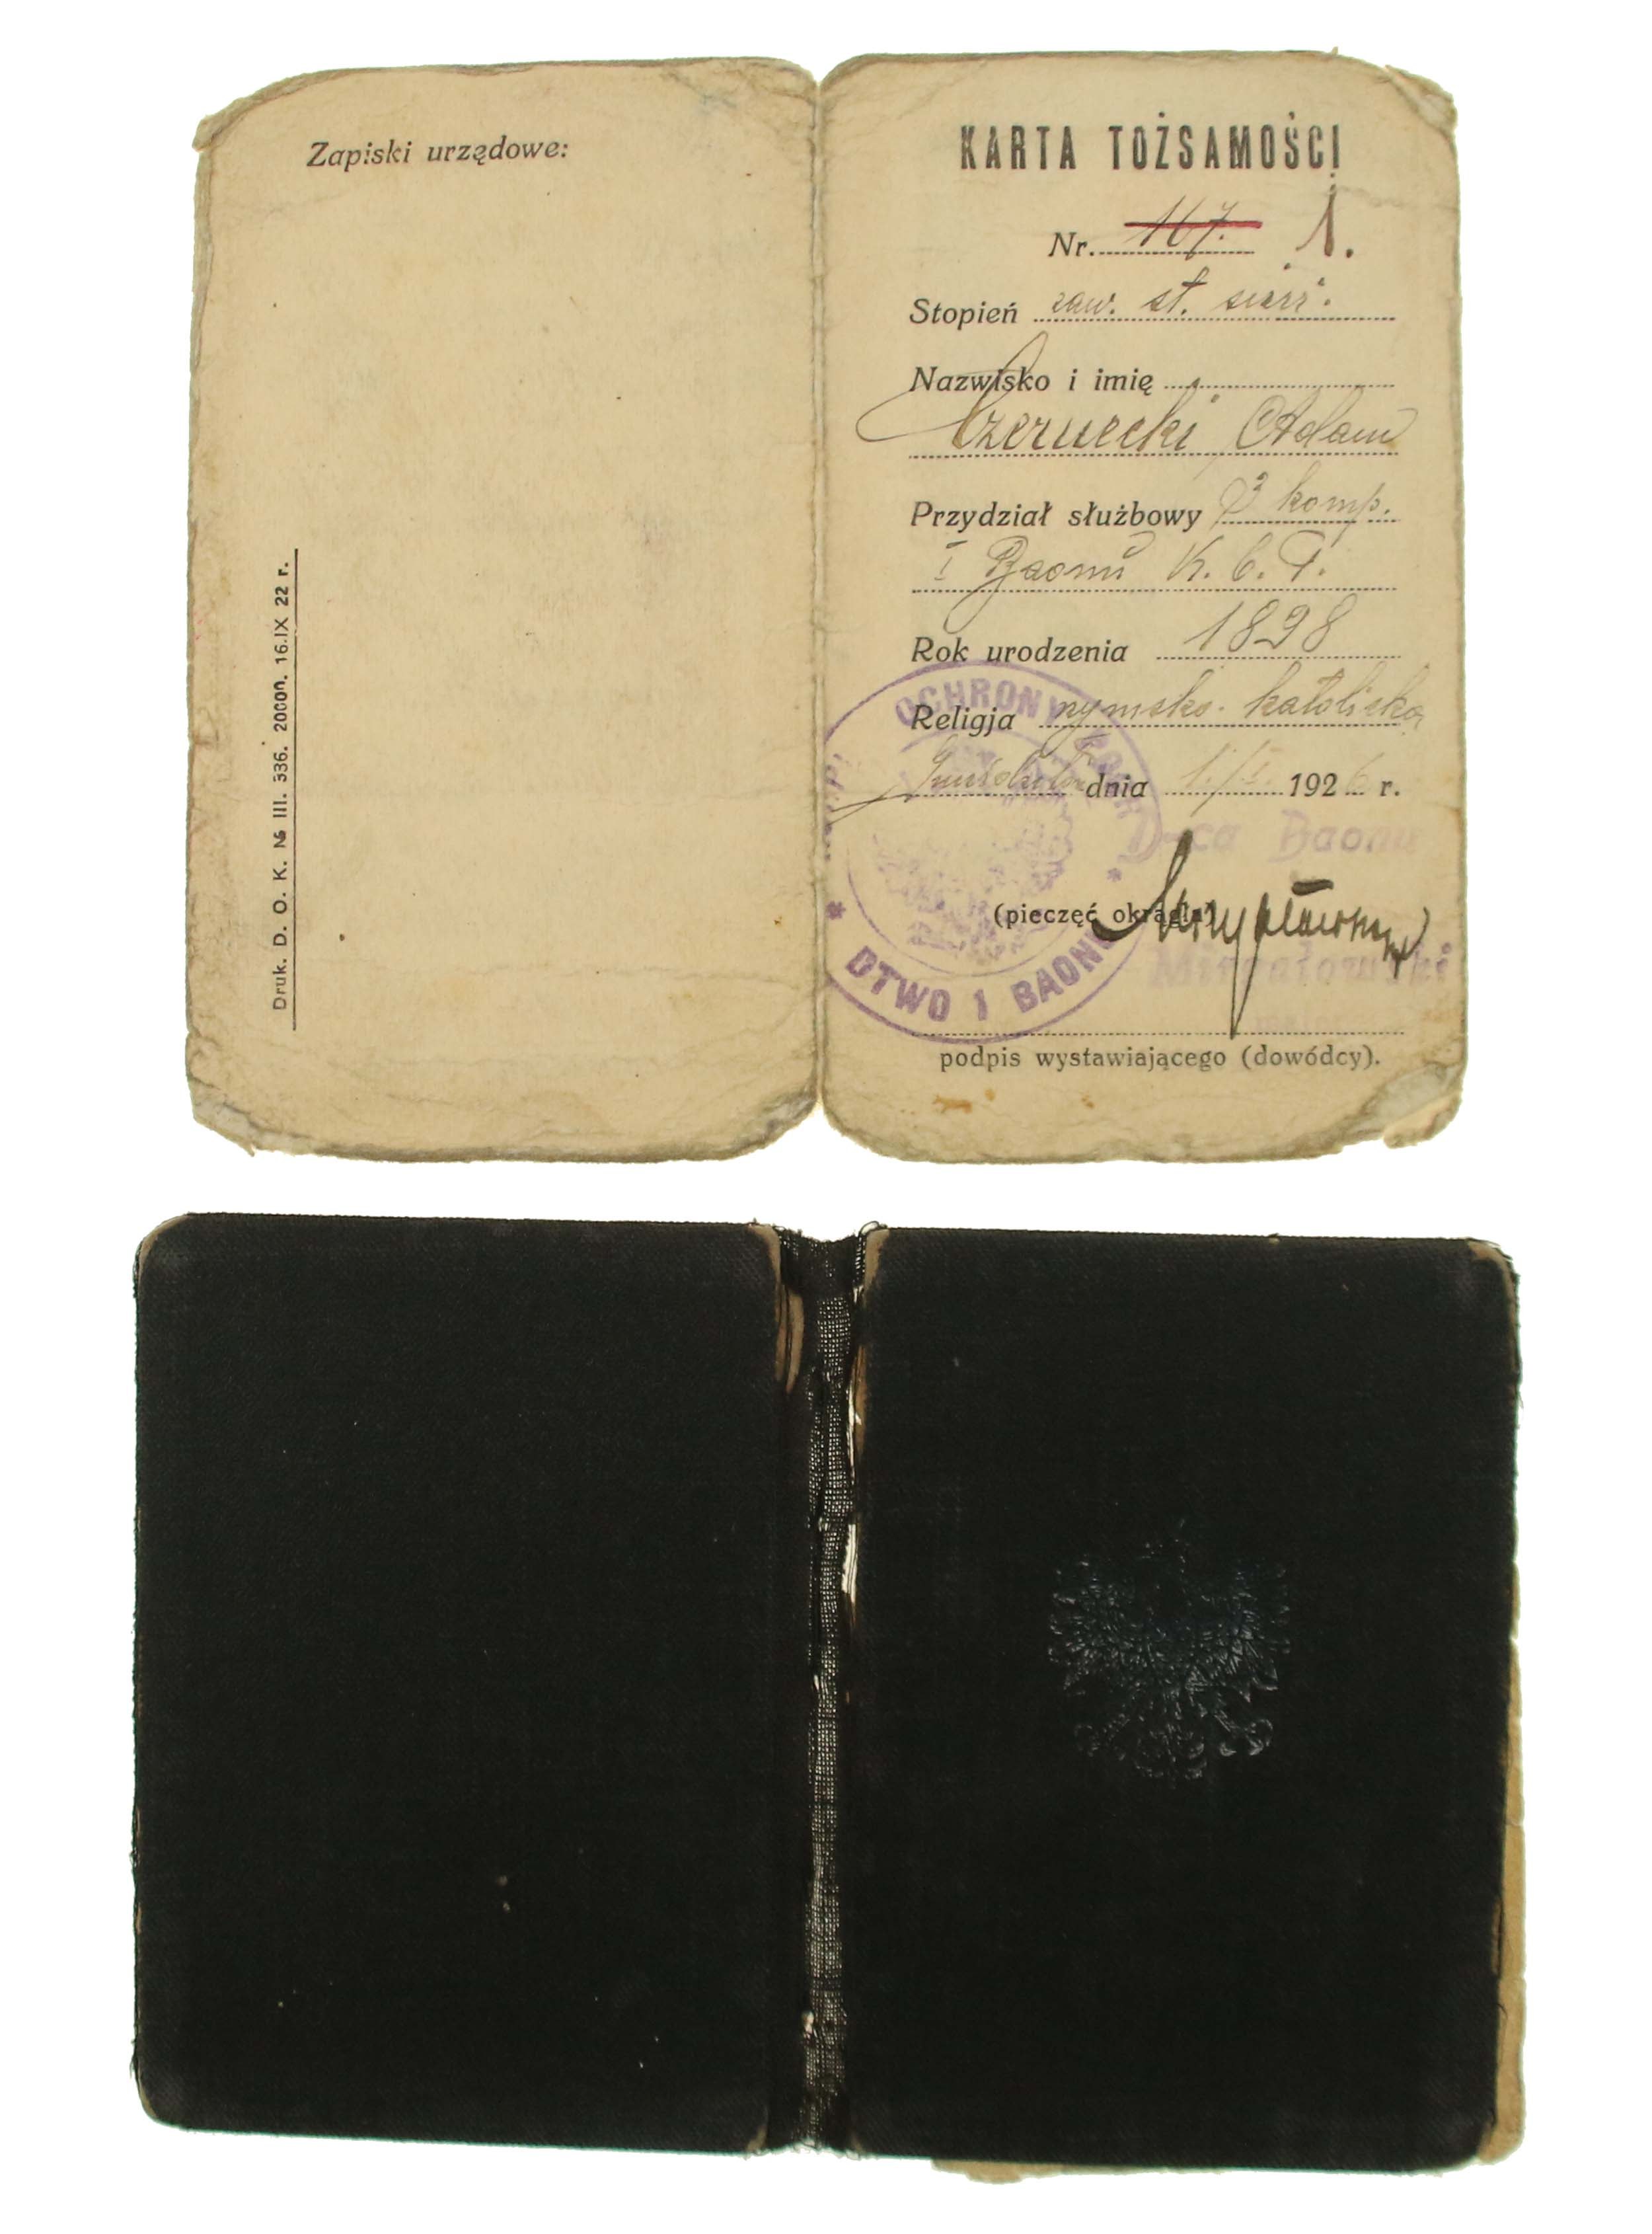 Zapiski urzędowe:
Druk. D. O. K. № III. 336. 20000. 16.IX 22 r.
KARTA TOŻSAMOŚCI
Nr. 167. 1.
Stopień zaw. st. sierż.
Nazwisko i imię
Czernecki Adam
Przydział służbowy 3 komp.
I Baonu K. O. P.
Rok urodzenia 1898
Religja rzymsko-katolicka
dnia 1./I. 1926 r.
OCHRONY
D-ca Baonu
(pieczęć okrągła)
DTWO 1 BAONU
major
podpis wystawiającego (dowódcy).